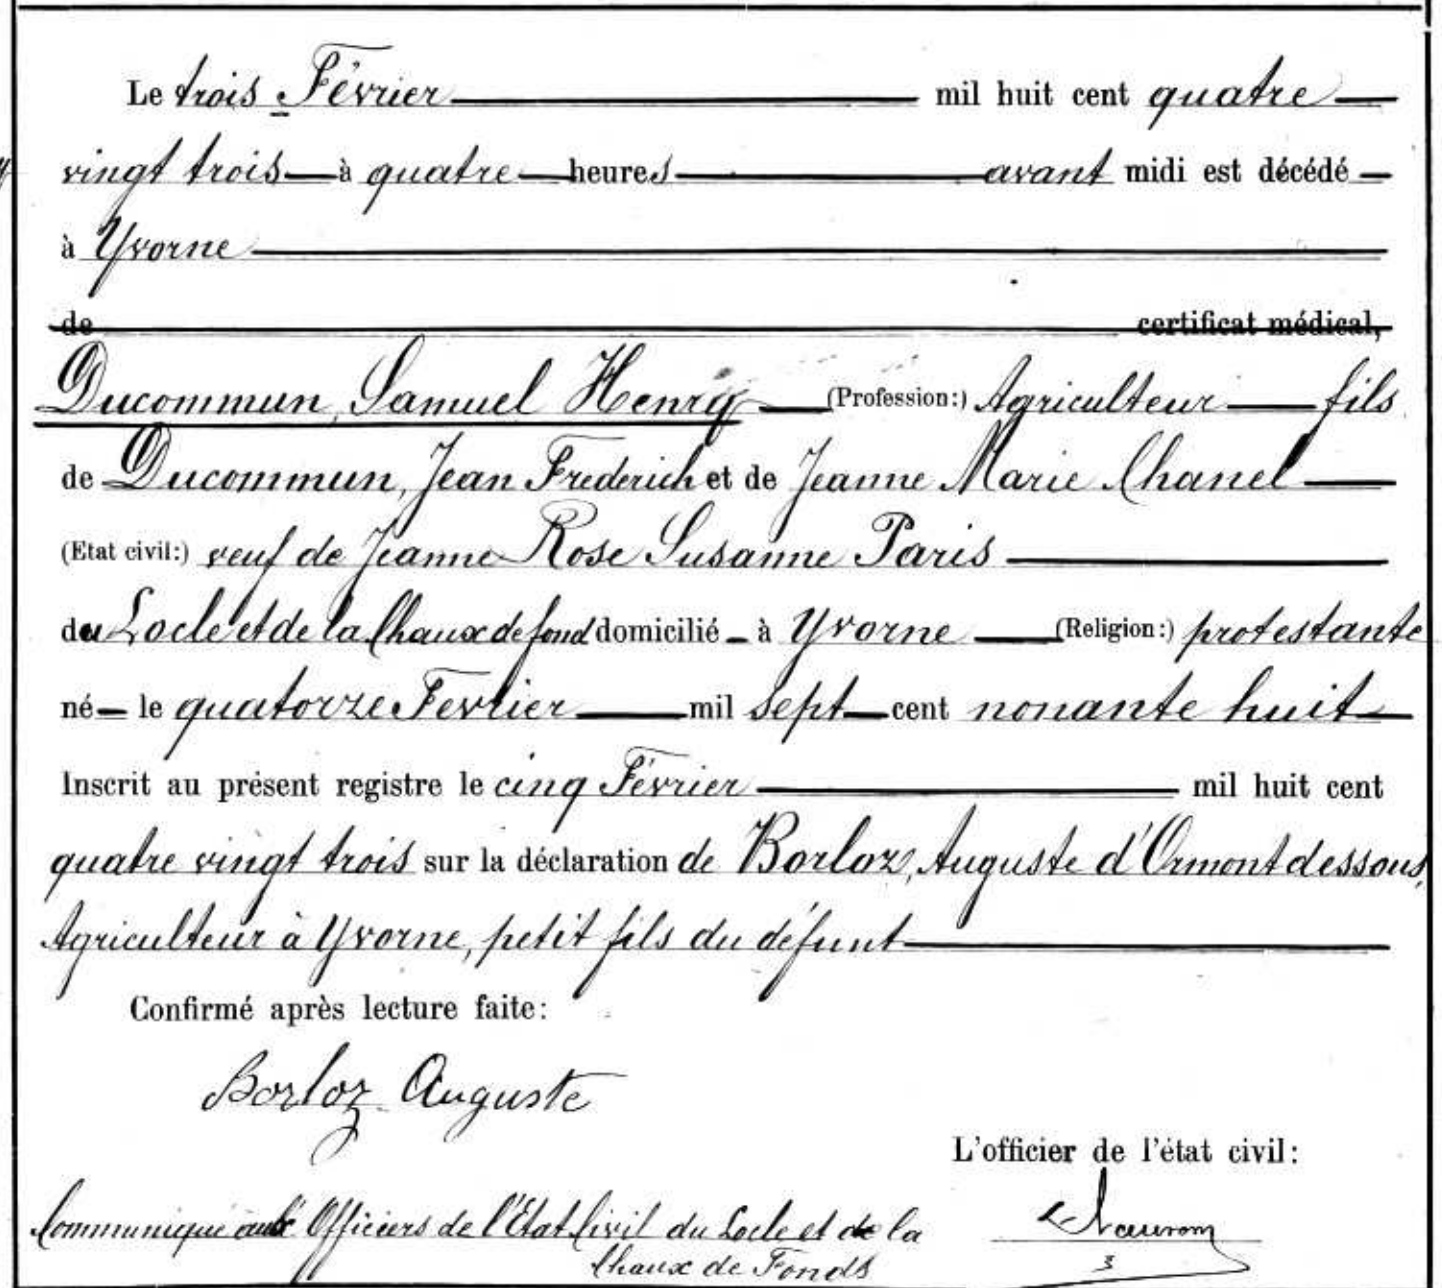 Le trois Février mil huit cent quatre
vingt trois à quatre heures avant midi est décédé
à Yvorne
de certificat médical,
Ducommun, Samuel Henry (Profession:) Agriculteur fils
de Ducommun, Jean Frederich et de Jeanne Marie Chanel
(Etat civil:) veuf de Jeanne Rose Susanne Paris
du Locle et de la Chaux de fond domicilié à Yvorne (Religion:) protestante
né le quatorze Fevrier mil sept cent nonante huit
Inscrit au présent registre le cinq Février mil huit cent
quatre vingt trois sur la déclaration de Borloz, Auguste d'Ormont dessous,
Agriculteur à Yvorne, petit fils du défunt
Confirmé après lecture faite:
Borloz Auguste
L'officier de l'état civil:
Communiqué aux Officiers de l'Etat Civil du Locle et de la
Chaux de Fonds